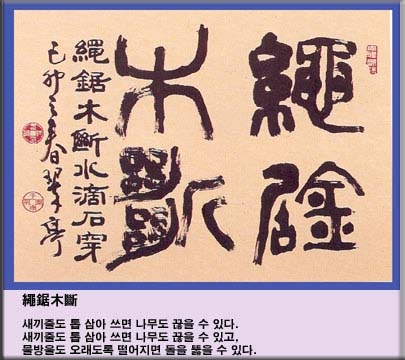 繩鋸
木斷
繩鋸木斷水滴石穿
己卯之春翠亭
繩鋸木斷
새끼줄도 톱 삼아 쓰면 나무도 끊을 수 있다.
새끼줄도 톱 삼아 쓰면 나무도 끊을 수 있고,
물방울도 오래도록 떨어지면 돌을 뚫을 수 있다.